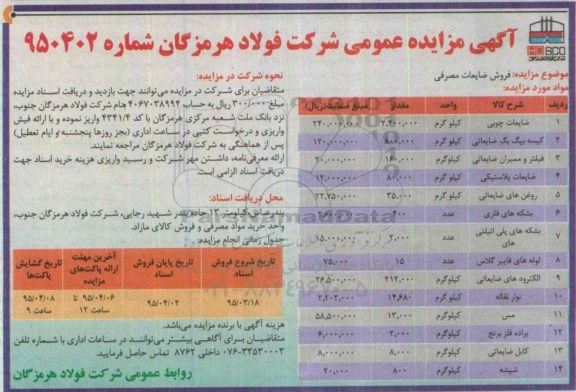 آگهی مزایده عمومی شرکت فولاد هرمزگان شماره ۹۵۰۴۰۲
HOSCO
موضوع مزایده: فروش ضایعات مصرفی
مواد مورد مزایده:
ردیف شرح کالا واحد مقدار مبلغ ضمانت(ریال)
۱ ضایعات چوبی کیلو گرم ۲,۴۰۰,۰۰۰ ۲۴۰,۰۰۰,۰۰۰
۲ کیسه بیگ بگ ضایعاتی کیلو گرم ۸۰۰,۰۰۰ ۱۲۰,۰۰۰,۰۰۰
۳ فیلتر و ممبران ضایعاتی کیلو گرم
۴ ضایعات پلاستیکی کیلو گرم ۸۰,۰۰۰ ۱۲,۰۰۰,۰۰۰
۵ روغن های ضایعاتی کیلو گرم ۳۵,۰۰۰ ۲۲,۷۵۰,۰۰۰
۶ بشکه های فلزی عدد ۴۰۰
۷ بشکه های پلی اتیلنی های عدد ۲,۰۰۰ ۱۵,۰۰۰,۰۰۰
۸ لوله های فایبر گلاس عدد ۱۵ ۷۵,۰۰۰
۹ الکترود های ضایعاتی کیلوگرم ۲۱۲,۰۰۰ ۲۶,۵۰۰,۰۰۰
۱۰ نوار نقاله کیلوگرم ۱۴,۶۸۰ ۲,۲۰۲,۰۰۰
۱۱ مس کیلوگرم ۱۳,۰۰۰ ۵۸,۵۰۰,۰۰۰
۱۲ براده فلز برنج کیلوگرم ۲,۰۰۰ ۶,۰۰۰,۰۰۰
۱۳ کابل ضایعاتی کیلوگرم ۸,۰۰۰ ۸,۰۰۰,۰۰۰
۱۴ شیشه کیلوگرم ۸۰۰ ۲۰,۰۰۰
نحوه شرکت در مزایده:
متقاضیان برای شرکت در مزایده می‌توانند جهت بازدید و دریافت اسناد مزایده
مبلغ ۳۰۰/۰۰۰ ریال به حساب ۴۰۶۷۰۳۸۹۹۴ جام شرکت فولاد هرمزگان جنوب،
نزد بانک ملت شعبه مرکزی هرمزگان با کد ۴۳۴۱/۴ واریز نموده و با ارائه فیش
واریزی و درخواست کتبی در ساعات اداری (بجز روزها پنجشنبه و ایام تعطیل)
پس از هماهنگی به شرکت فولاد هرمزگان مراجعه نمایند.
ارائه معرفی‌نامه، داشتن مهر شرکت و رسید واریزی هزینه خرید اسناد جهت
دریافت اسناد الزامی است.
محل دریافت اسناد:
بندرعباس، کیلومتر ۱۳ جاده بندر شهید رجایی، شرکت فولاد هرمزگان جنوب،
واحد خرید مواد مصرفی و فروش کالای مازاد.
جدول زمانی انجام مزایده:
تاریخ شروع فروش اسناد تاریخ پایان فروش اسناد آخرین مهلت ارائه پاکت‌های مزایده تاریخ گشایش پاکت‌ها
۹۵/۰۳/۱۸ ۹۵/۰۴/۰۲ ۹۵/۰۴/۰۶ تا ساعت ۱۲ ۹۵/۰۴/۰۸ ساعت ۹
هزینه آگهی با برنده مزایده می‌باشد.
متقاضیان برای آگاهی بیشتر می‌توانند در ساعات اداری با شماره تلفن
۰۷۶-۳۳۵۳۰۰۰۳ داخلی ۸۷۶۲ تماس حاصل فرمایید.
روابط عمومی شرکت فولاد هرمزگان